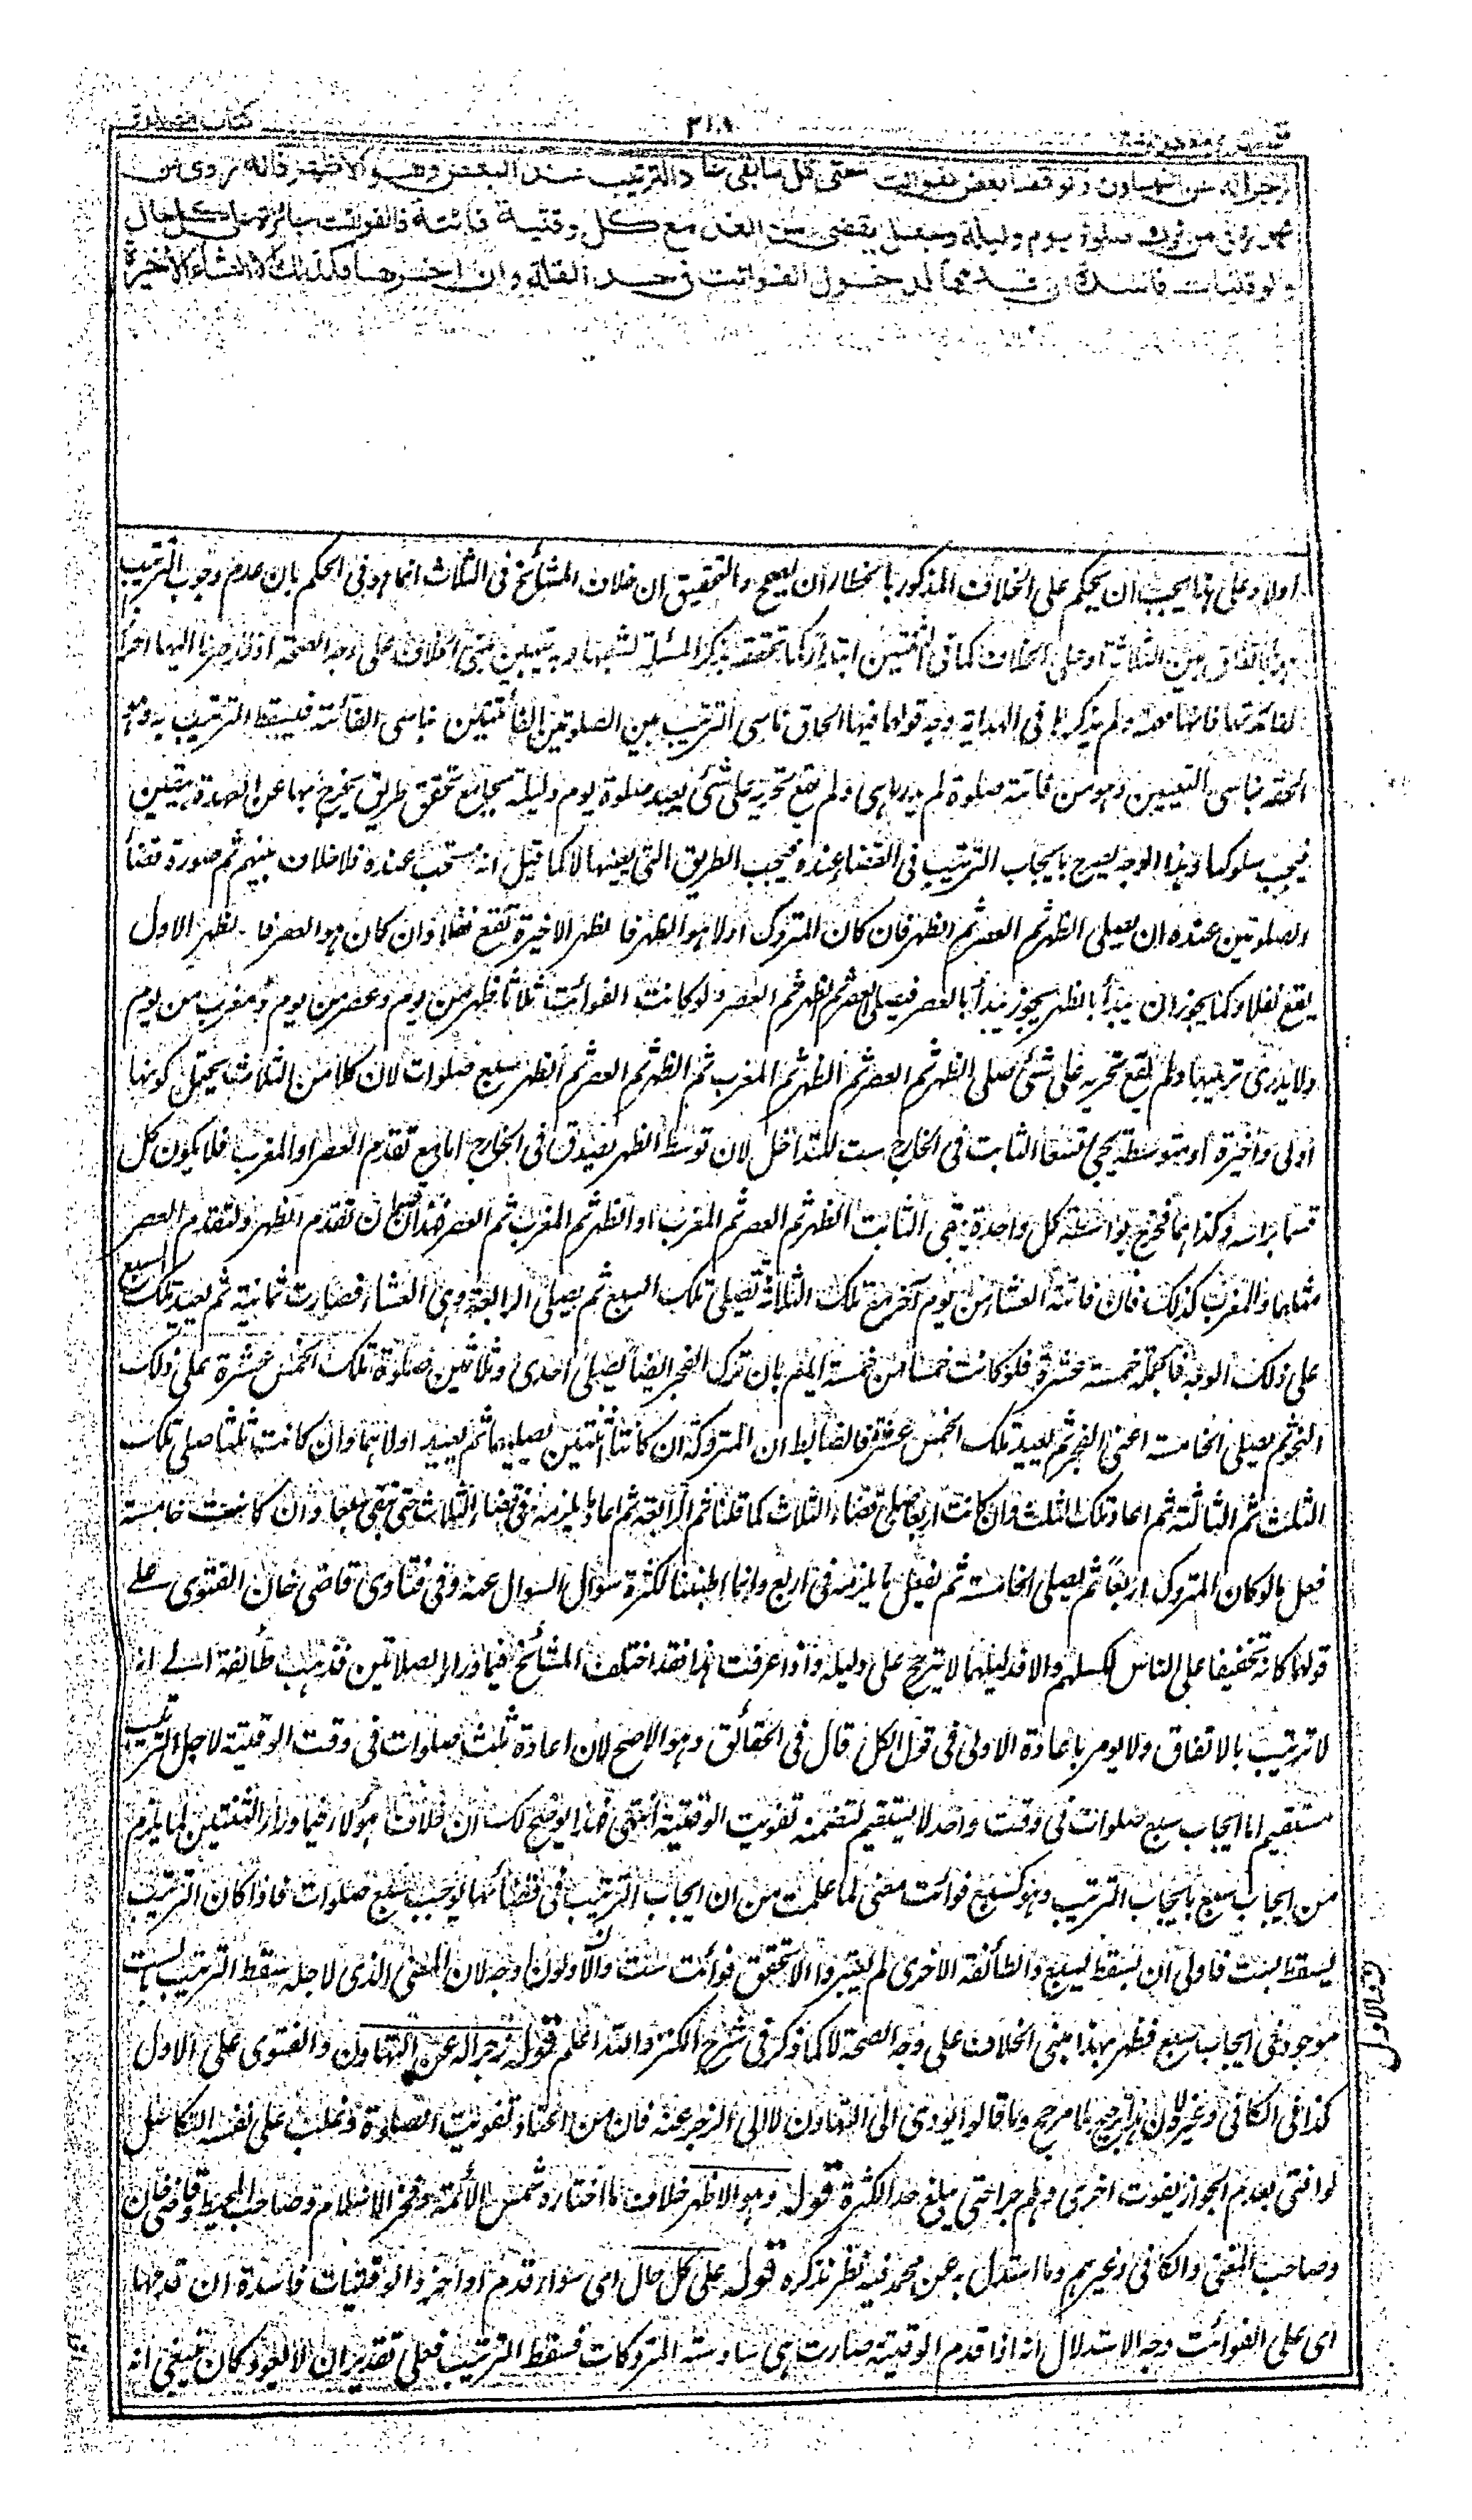 كتاب الصلوة
٣٠٨
زجرا له عن التهاون ولو قضى بعض الفوائت حتى قل ما بقي عاد الترتيب عند البعض وهو الاظهر فانه روى عن
محمد في من ترك صلوة يوم وليلة وجعل يقضي من الغد مع كل وقتية فائتة فالفوائت جائزة على كل حال
والوقتيات فاسدة ان قدمها لدخول الفوائت في حد القلة وان اخرها فكذلك الا العشاء الاخيرة
اولا وعلى هذا يجب ان يحكم على الخلاف المذكور بالخطأ او ان يصح والتحقيق ان خلاف المشائخ في الثلاث انما هو في الحكم بان عدم وجوب الترتيب
بالاتفاق بين الثلاثة او على الخلاف كما في الثنتين ابتداء كما تحققه بذكر المسألة لشعبها ويتبين مبنى الخلاف على وجه الصحة
لفائدتها فانها مهمة ولم يذكرها في الهداية وجه قولهما فيها الحاق ناسي الترتيب بين الصلوتين الفائتتين بناسي الفائتة فيسقط الترتيب به وهو
الحقه بناسي التعيين وهو من فاتته صلوة لم يدر ما هي ولم يقع تحريه على شئ يعيد صلوة يوم وليلة بجامع تحقق طريق يخرج بها عن العهدة بيقين
فيجب سلوكها وهذا الوجه يصرح بايجاب الترتيب في القضاء عنده فيجب الطريق التي يعينها لا كما قيل انه مستحب عنده فلا خلاف بينهم ثم صورة قضاء
الصلوتين عنده ان يصلي الظهر ثم العصر ثم الظهر فان كان المتروك اولا هو الظهر فالظهر الاخيرة تقع نفلا وان كان هو العصر فالظهر الاول
يقع نفلا وكما يجوز ان يبدأ بالظهر يجوز يبدأ بالعصر فيصلي العصر ثم الظهر ثم العصر ولو كانت الفوائت ثلاثا ظهر من يوم وعصر من يوم ومغرب من يوم
ولا يدرى ترتيبها ولم يقع تحريه على شئ صلى الظهر ثم العصر ثم الظهر ثم المغرب ثم الظهر ثم العصر ثم الظهر سبع صلوات لان كلا من الثلاث يحتمل كونها
اولى واخيرة او متوسطة يجئ تسعا الثابت في الخارج ست للتداخل لان توسط الظهر يصدق في الخارج اما مع تقدم العصر او المغرب فلا يكون كل
قسما براسه وكذا هما فخرج بواسطة كل واحدة بقى الثابت الظهر ثم العصر ثم المغرب او الظهر ثم المغرب ثم العصر فهذان قسطان تقدم الظهر ولتقدم العصر
مثلهما والمغرب كذلك فان فاتته العشاء من يوم آخر مع تلك الثلاثة يصلي تلك السبع ثم يصلي الرابعة وهي العشاء فصارت ثمانية ثم يعيد تلك السبع
على ذلك الوجه فالجملة خمسة عشرة فلو كانت خمسا من خمسة ايام بان ترك الفجر ايضا يصلي احدى وثلاثين صلوة تلك الخمس عشرة على ذلك
النحو ثم يصلي الخامسة اعني الفجر ثم يعيد تلك الخمس عشرة فالضابط ان المتروكة ان كانتا ثنتين يصليهما ثم يعيد اولاهما وان كانت ثلاثا صلى تلك
الثلث ثم الثالثة ثم اعاد تلك الثلث وان كانت اربعا صلى قضاء الثلاث كما قلنا ثم الرابعة ثم اعاد ما يلزمه في قضاء الثلاث وان كانت خامسة
فعل ما لو كان المتروك اربعا ثم يصلي الخامسة ثم يفعل ما يلزمه في اربع وانما اطنبنا لكثرة سؤال السوال عنه وفي فتاوى قاضي خان الفتوى على
قولهما كانه تخفيفا على الناس لكسلهم والا فدليلهما لا يترجح على دليله واذا عرفت هذا فقد اختلف المشائخ فيما وراء الصلاتين فذهب طائفة الى انه
لا ترتيب بالاتفاق ولا يومر باعادة الاولى في قول الكل قال في الحقائق وهو الاصح لان اعادة ثلث صلوات في وقت الوقتية لاجل الترتيب
مستقيم اما ايجاب سبع صلوات في وقت واحد لا يستقيم لتضمنه تفويت الوقتية انتهى فهذا يوضح لك ان خلاف هؤلاء فيما وراء الثنتين لما يلزم
من ايجاب سبع بايجاب الترتيب وهو كسبع فوائت معنى لما علمت من ان ايجاب الترتيب في قضائها يوجب سبع صلوات فاذا كان الترتيب
يسقط بست فاولى ان يسقط بسبع والطائفة الاخرى لم يعتبروا الا تحقق فوائت ست والاولون اوجه لان المعنى الذي لاجله سقط الترتيب بالست
موجود في ايجاب سبع فظهر بهذا مبنى الخلاف على وجه الصحة لا كما ذكر في شرح الكنز والله اعلم قوله زجرا له عن التهاون والفتوى على الاول
كذا في الكافي وغيره لان هذا ترجيح بلا مرجح وما قالوا يودي الى التهاون لا الى الزجر عنه فان من اعتاد تفويت الصلوة وغلب على نفسه التكاسل
لو افتى بعدم الجواز يفوت اخرى وهلم جرا حتى يبلغ حد الكثرة قوله وهو الاظهر خلاف ما اختاره شمس الأئمة وفخر الاسلام وصاحب المحيط وقاضي خان
وصاحب المغني والكافي وغيرهم وما استدل به عن محمد فيه نظر نذكره قوله على كل حال اي سواء قدم او اخر والوقتيات فاسدة ان قدمها
اى على الفوائت وجه الاستدلال انه اذا قدم الوقتية صارت هي سادسة المتروكات فسقط الترتيب فعلى تقدير ان لا يعود كان ينبغي انه